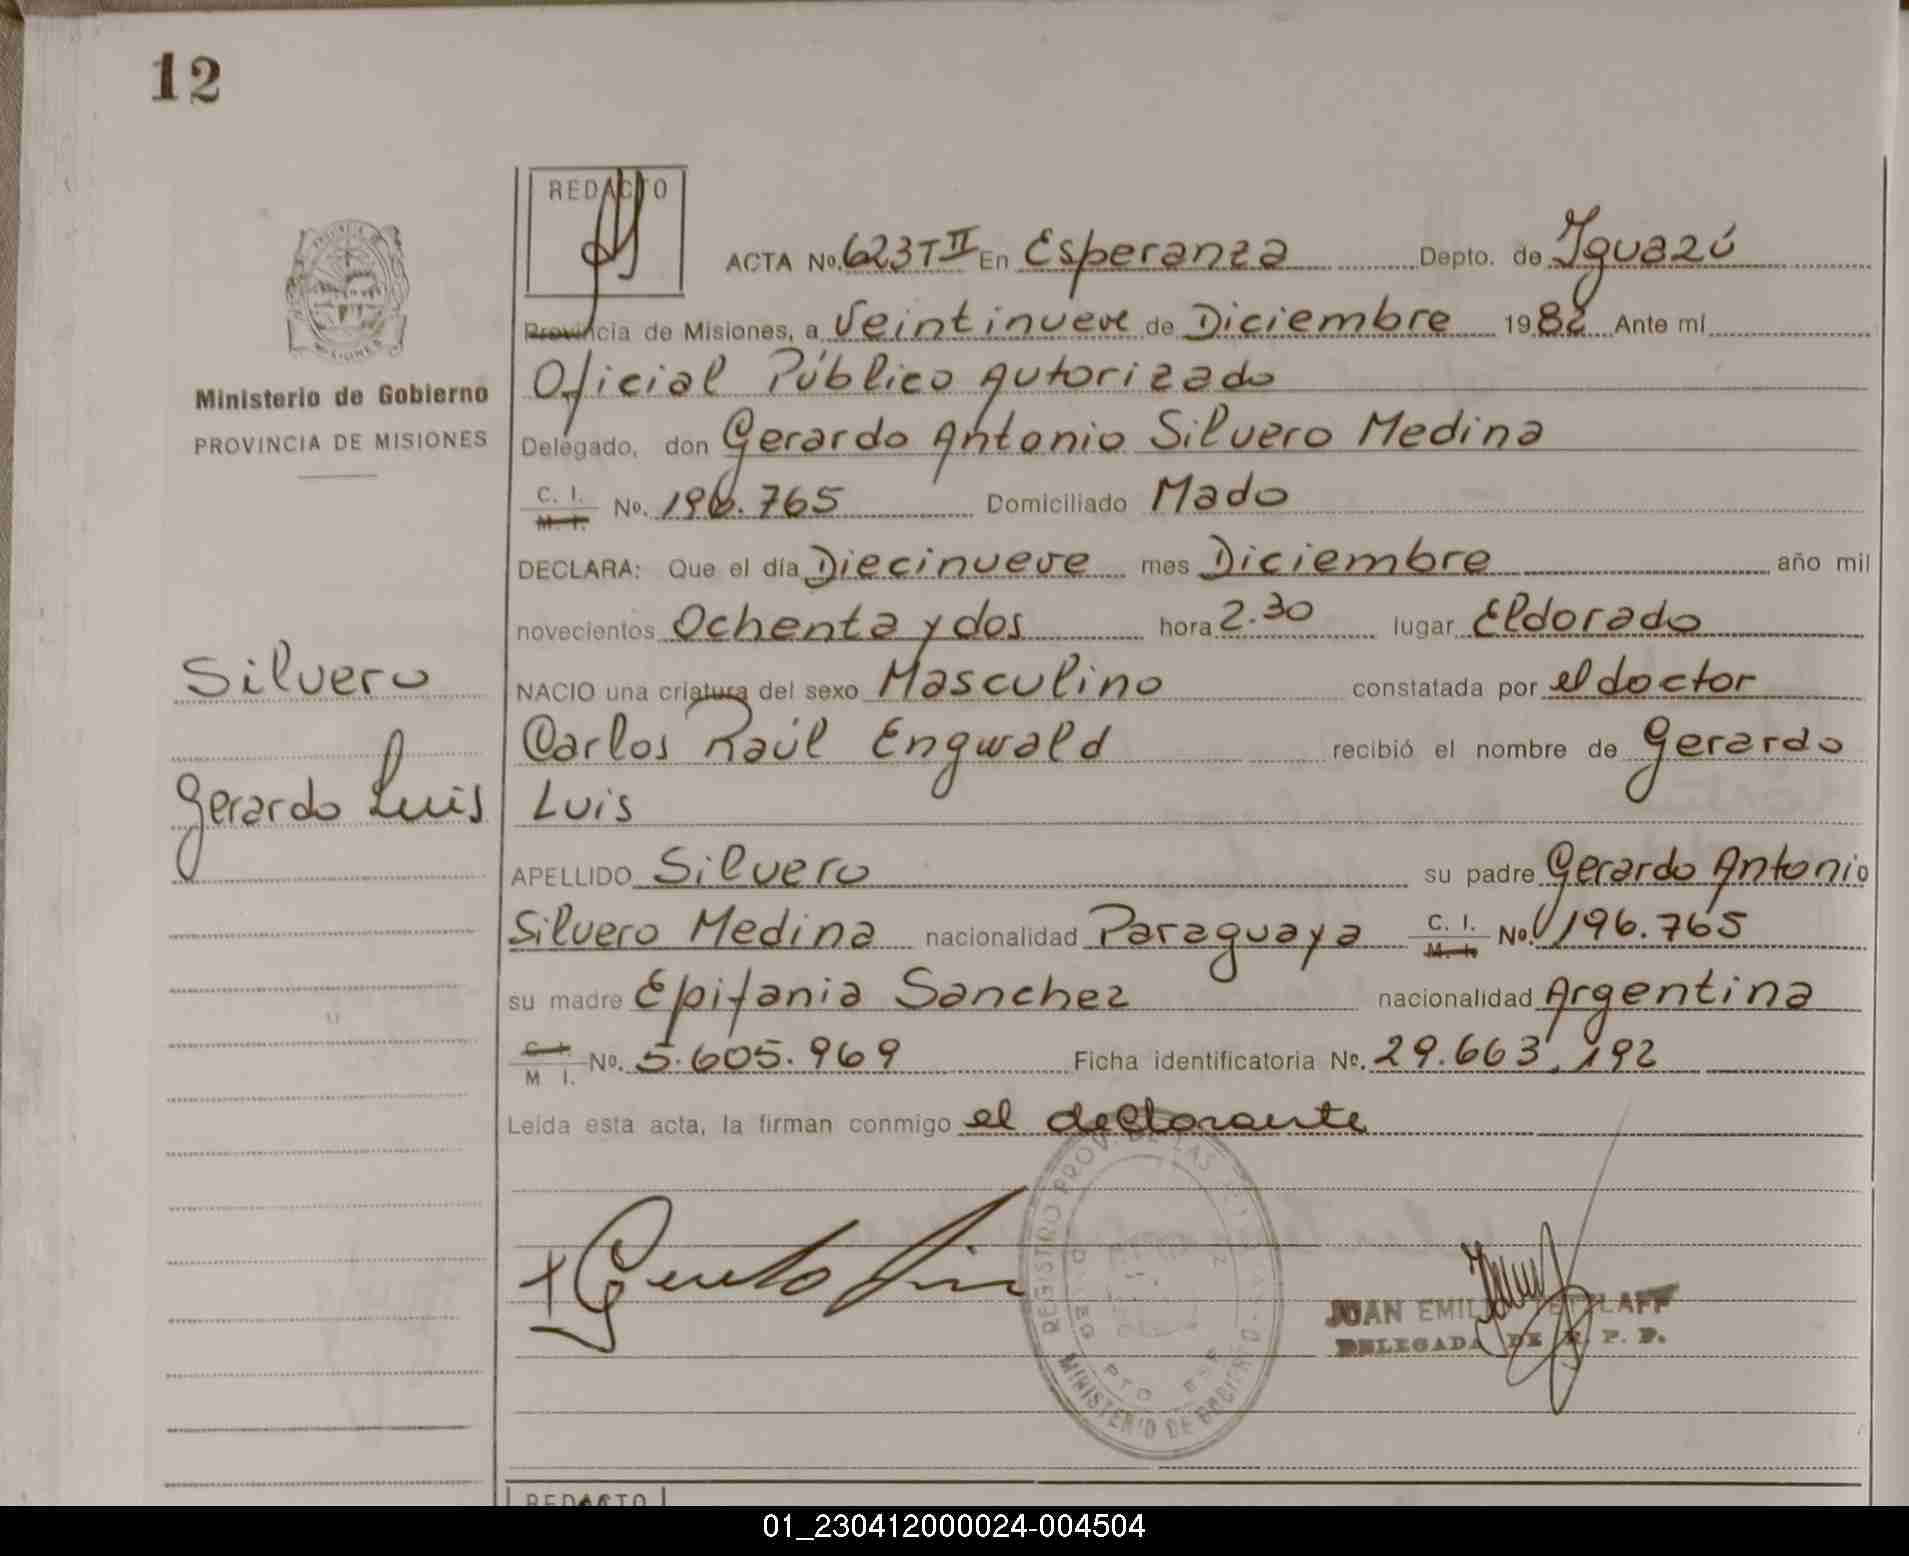 12
REDACTO
ACTA No. 623 T II En Esperanza Depto. de Iguazú
Provincia de Misiones, a Veintinueve de Diciembre 1982 Ante mí
Oficial Público Autorizado
Delegado, don Gerardo Antonio Silvero Medina
C. I. M. I. No. 196.765 Domiciliado Mado
DECLARA: Que el día Diecinueve mes Diciembre año mil
novecientos Ochenta y dos hora 2.30 lugar Eldorado
NACIO una criatura del sexo Masculino constatada por el doctor
Carlos Raúl Engwald recibió el nombre de Gerardo
Luis
APELLIDO Silvero su padre Gerardo Antonio
Silvero Medina nacionalidad Paraguaya C. I. M. I. No. 196.765
su madre Epifania Sanchez nacionalidad Argentina
C. I. M I. No. 5.605.969 Ficha identificatoria No. 29.663.192
Leída esta acta, la firman conmigo el declarante
Ministerio de Gobierno
PROVINCIA DE MISIONES
Silvero
Gerardo Luis
MISIONES
REGISTRO PROV. DE LAS
MINISTERIO DE GOBIERNO
JUAN
DELEGADA DE R. P. P.
REDACTO
01_230412000024-004504